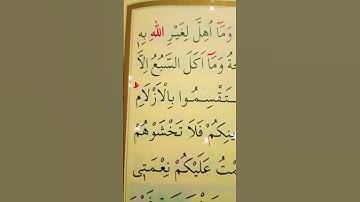 وَمَاۤ اُهِلَّ لِغَيْرِ اللّٰهِ بِهٖ
حَةُ وَمَاۤ اَكَلَ السَّبُعُ اِلَّا
سْتَقْسِمُوا بِالْاَزْلَامِ ؕ
يْنِكُمْ فَلَا تَخْشَوْهُمْ
مْتُ عَلَيْكُمْ نِعْمَتِیْ